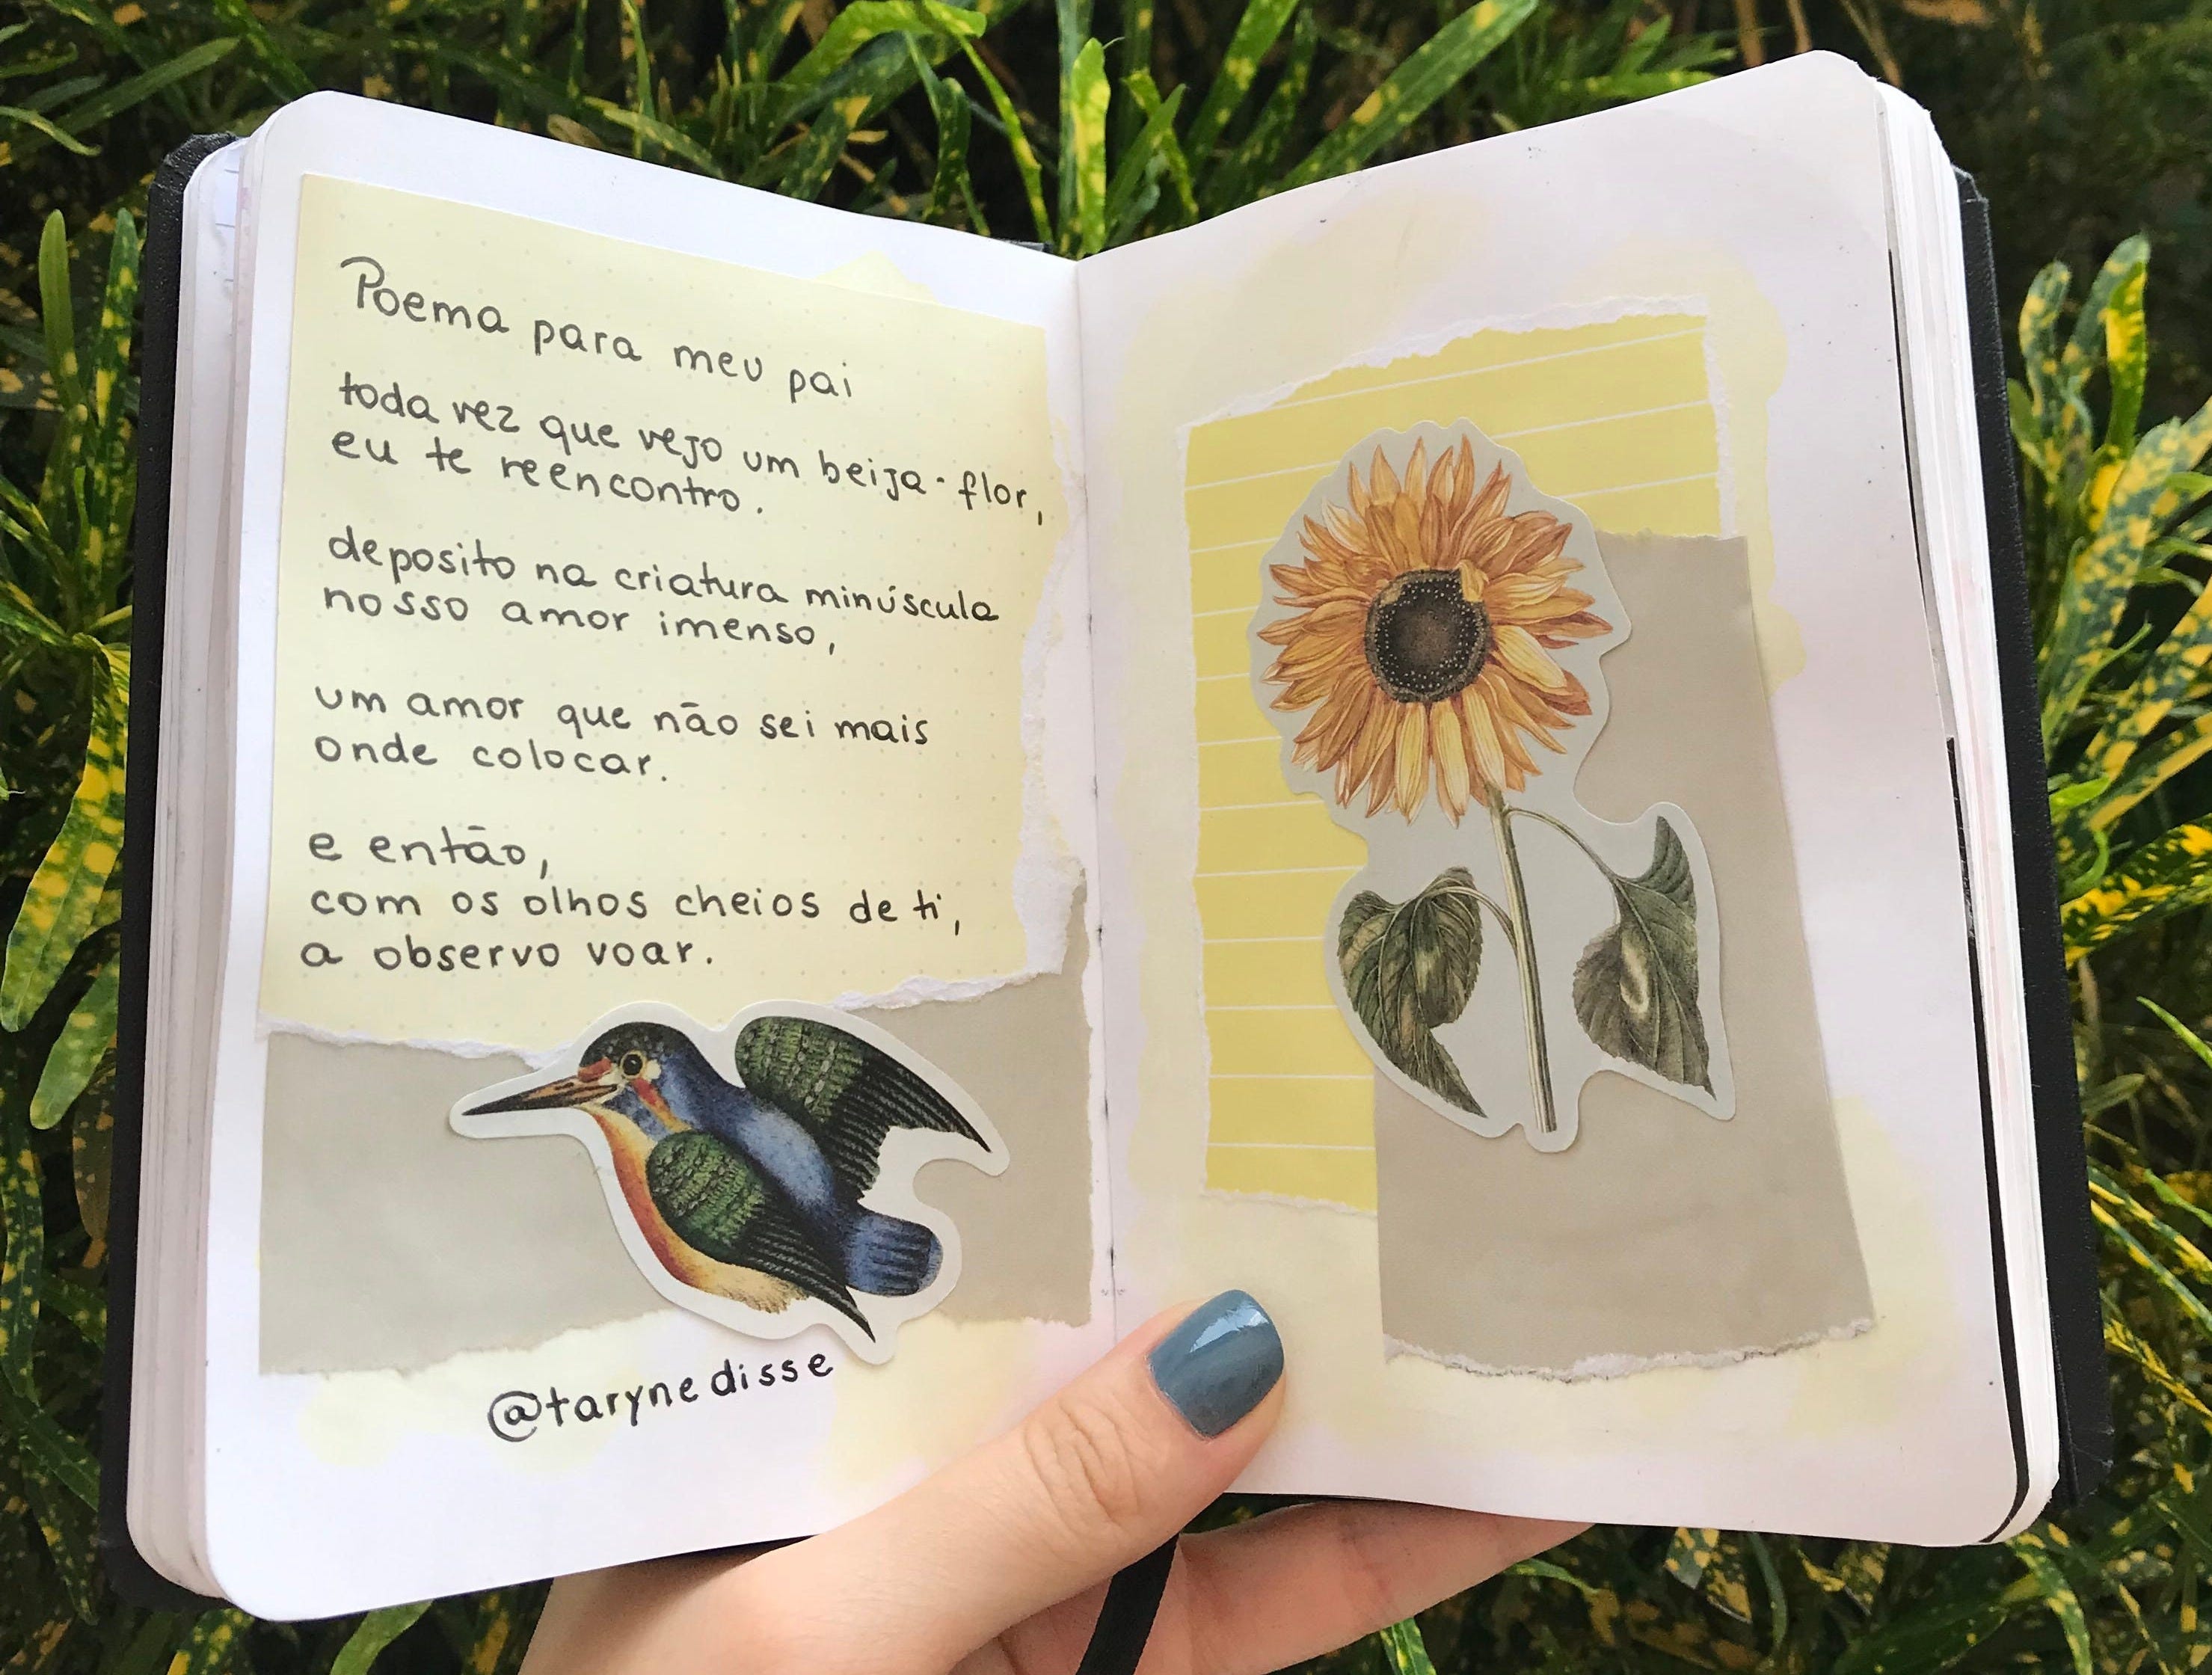 Poema para meu pai
toda vez que vejo um beija-flor,
eu te reencontro.
deposito na criatura minúscula
nosso amor imenso,
um amor que não sei mais
onde colocar.
e então,
com os olhos cheios de ti,
a observo voar.
@tarynedisse